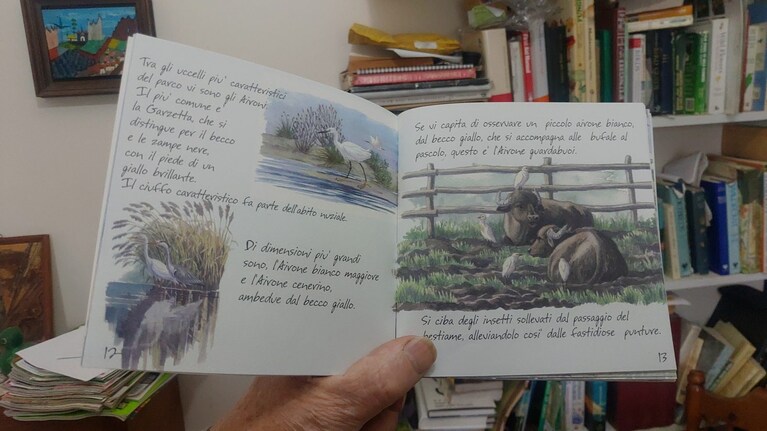 Tra gli uccelli piu' caratteristici
del parco vi sono gli Aironi.
Il piu' comune e'
la Garzetta, che si
distingue per il becco
e le zampe nere,
con il piede di un
giallo brillante.
Il ciuffo caratteristico fa parte dell'abito nuziale.
Di dimensioni piu' grandi
sono, l'Airone bianco maggiore
e l'Airone cenerino,
ambedue dal becco giallo.
12
Se vi capita di osservare un piccolo airone bianco,
dal becco giallo, che si accompagna alle bufale al
pascolo, questo e' l'Airone guardabuoi.
Si ciba degli insetti sollevati dal passaggio del
bestiame, alleviandolo cosi' dalle fastidiose punture.
13